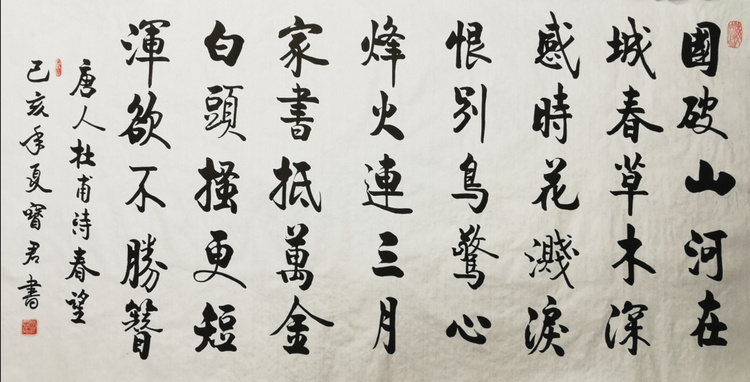 國破山河在
城春草木深
感時花濺淚
恨別鳥驚心
烽火連三月
家書抵萬金
白頭搔更短
渾欲不勝簪
唐人杜甫詩春望
己亥年夏寶君書